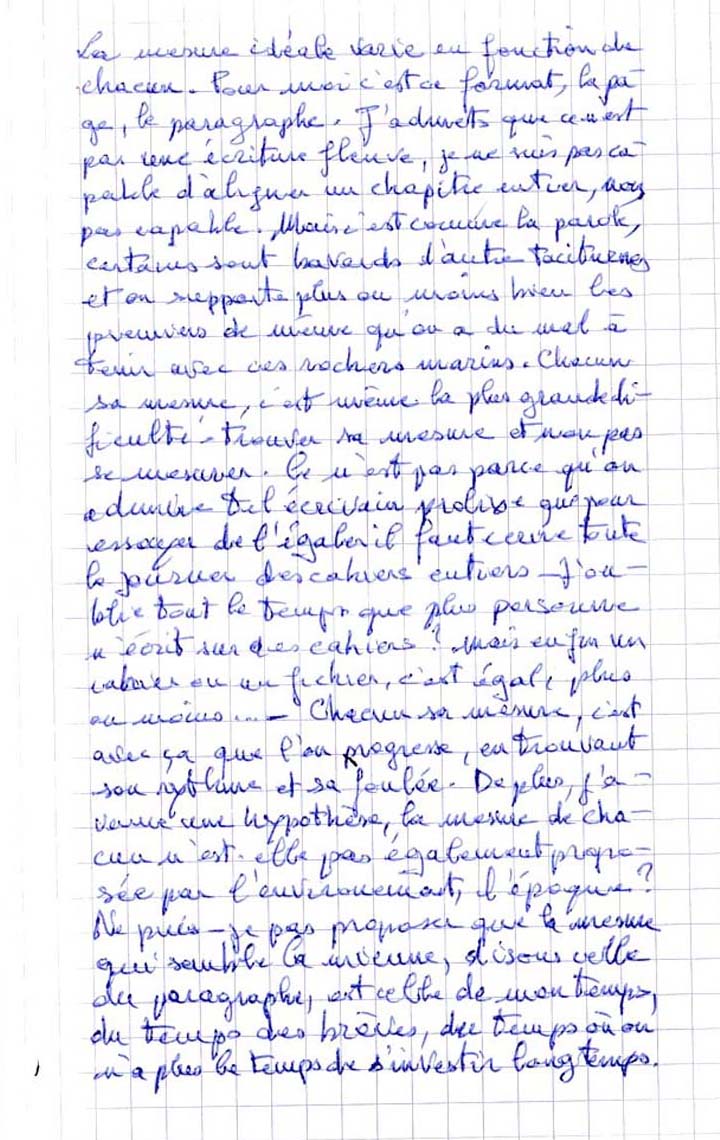 La mesure idéale varie en fonction de
chacun. Pour moi c'est ce format, la pa-
ge, le paragraphe. J'admets que ce n'est
pas une écriture fleuve, je ne suis pas ca-
pable d'aligner un chapitre entier, non
pas capable. Mais c'est comme la parole,
certains sont bavards d'autre taciturnes
et on supporte plus ou moins bien les
premiers de même qu'on a du mal à
tenir avec ces rochers marins. Chacun
sa mesure, c'est même la plus grande di-
ficulté - trouver sa mesure et non pas
se mesurer. Ce n'est pas parce qu'on
admire tel écrivain prolixe que pour
essayer de l'égaler il faut écrire toute
la journée des cahiers entiers - J'ou-
blie tout le temps que plus personne
n'écrit sur des cahiers ! Mais enfin un
cahier ou un fichier, c'est égal, plus
ou moins ... - Chacun sa mesure, c'est
avec ça que l'on progresse, en trouvant
son rythme et sa foulée. De plus, j'a-
vance une hypothèse, la mesure de cha-
cun n'est-elle pas également propo-
sée par l'environement, l'époque ?
Ne puis-je pas proposer que la mesure
qui semble la mienne, disons celle
du paragraphe, est celle de mon temps,
du temps des brèves, du temps où on
n'a plus le temps de s'investir longtemps.